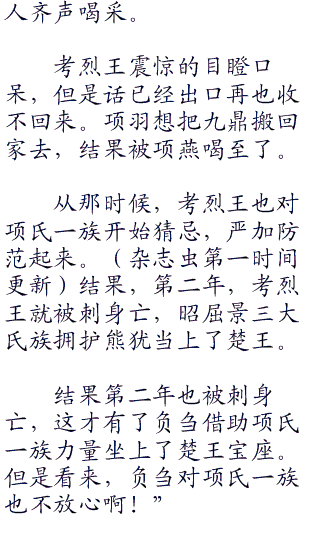 人齐声喝采。
考烈王震惊的目瞪口
呆，但是话已经出口再也收
不回来。项羽想把九鼎搬回
家去，结果被项燕喝至了。
从那时候，考烈王也对
项氏一族开始猜忌，严加防
范起来。（杂志虫第一时间
更新）结果，第二年，考烈
王就被刺身亡，昭屈景三大
氏族拥护熊犹当上了楚王。
结果第二年也被刺身
亡，这才有了负刍借助项氏
一族力量坐上了楚王宝座。
但是看来，负刍对项氏一族
也不放心啊！”